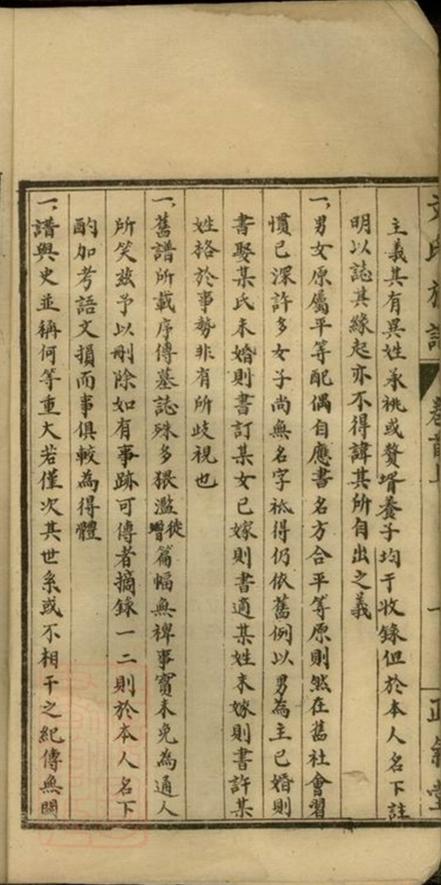 氏族譜 卷首上 一
主義其有異姓承祧或贅壻養子均于收錄但於本人名下註
明以誌其緣起亦不得諱其所自出之義
一、男女原屬平等配偶自應書名方合平等原則然在舊社會習
慣已深許多女子尚無名字祗得仍依舊例以男為主已婚則
書娶某氏未婚則書訂某女已嫁則書適某姓未嫁則書許某
姓格於事勢非有所歧視也
一、舊譜所載序傳墓誌殊多猥濫徒增篇幅無裨事實未免為通人
所笑茲予以刪除如有事跡可傳者摘錄一二則於本人名下
酌加考語文損而事俱較為得體
一、譜與史並稱何等重大若僅次其世系或不相干之紀傳無關